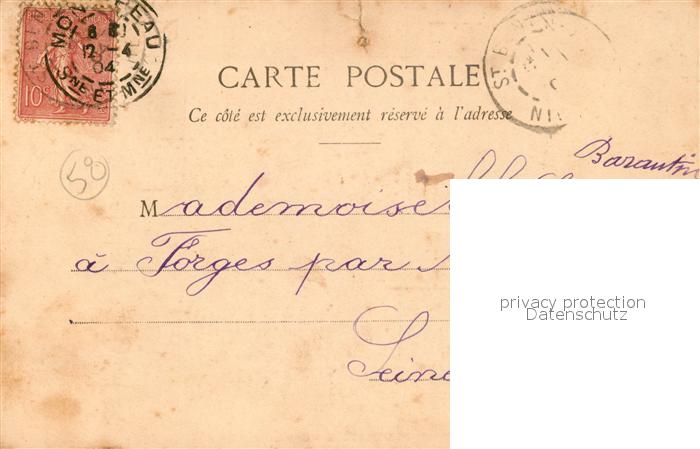 MO EAU
8 8
12 - 4
04
SNE ET MNE
10
ST B
NI
CARTE POSTALE
Ce côté est exclusivement réservé à l'adresse
50
Barantin
Mademoise
à Forges par
Seine
privacy protection
Datenschutz